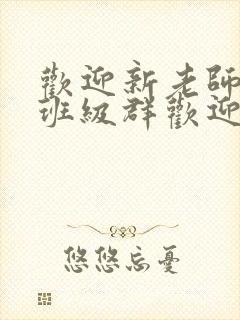 歡迎新老師
班級群歡迎
悠悠忘憂